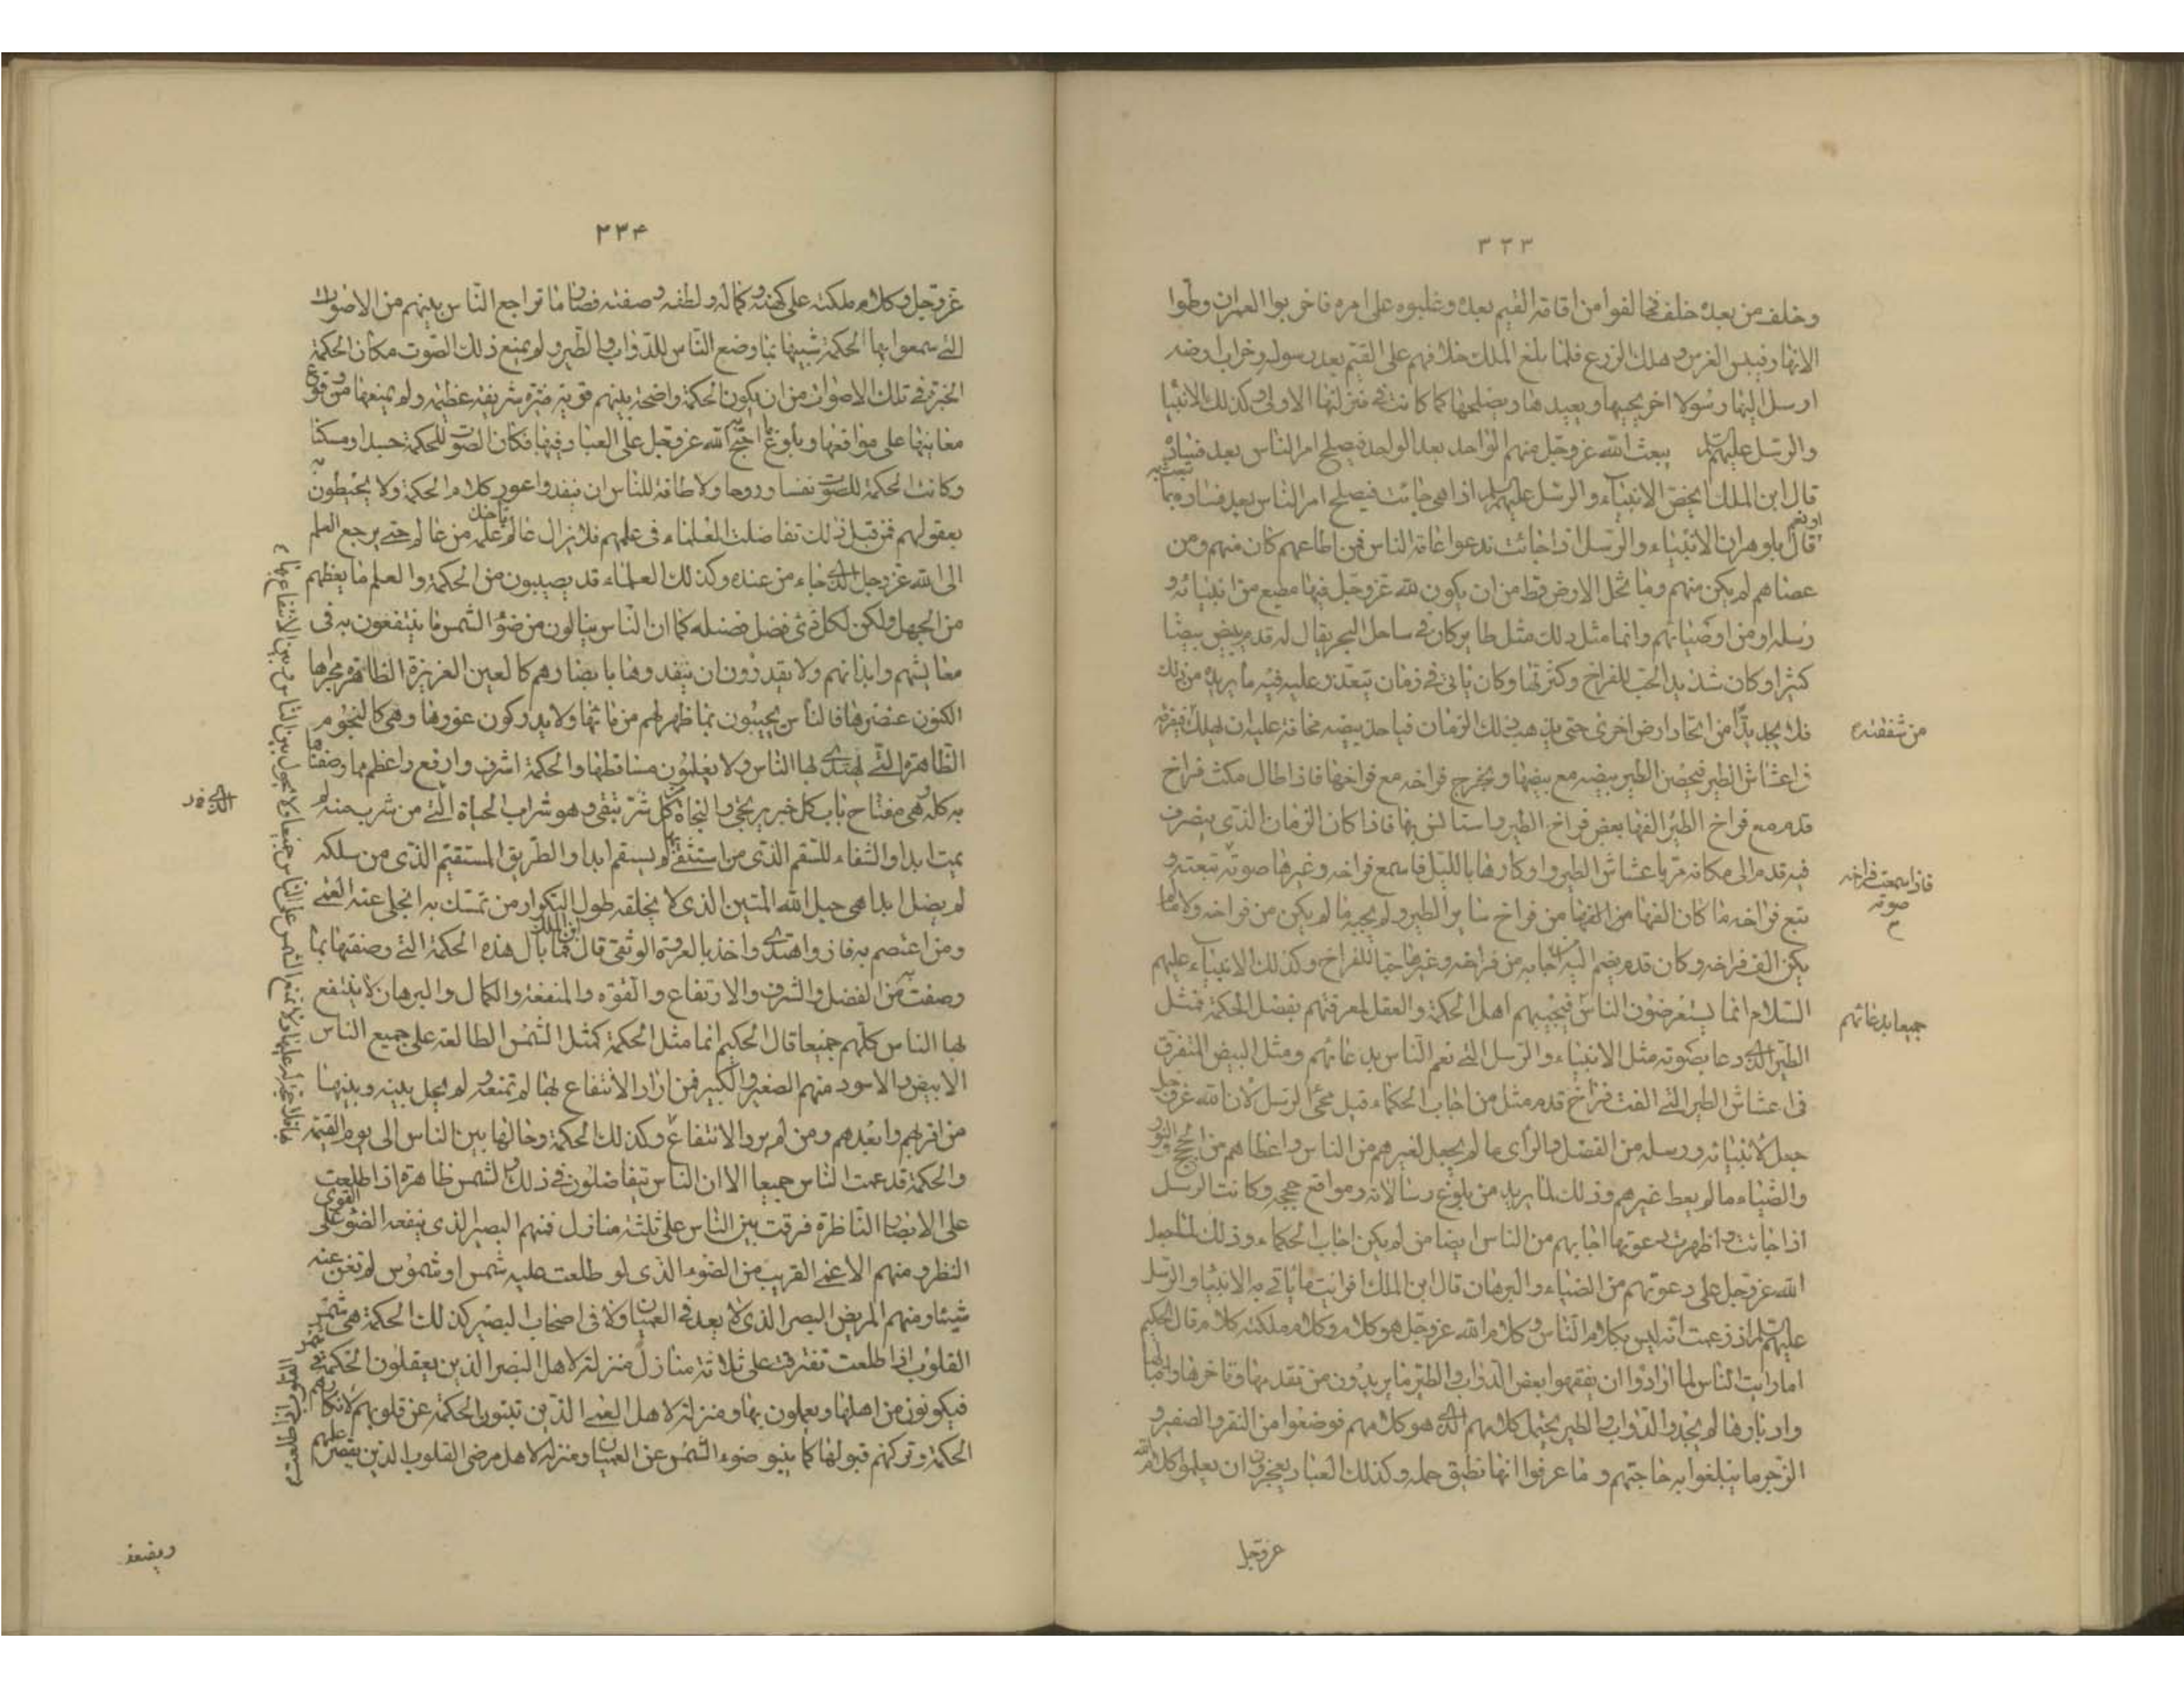 ٣٣٣
وخلف من بعده خلف فخالفوا من اقامة القيم بعده وغلبوه على امره فاخربوا العمران وطموا
الانهار فيبس الغرس وهلك الزرع فلما بلغ الملك خلافهم على القيم بعد رسوله وخراب ارضه
ارسل اليها رسولا اخر يحييها ويعيدها ويصلحها كما كانت في منزلتها الاولى وكذلك الانبياء
والرسل عليهم يبعث الله عز وجل منهم الواحد بعد الواحد فيصلح امر الناس بعد فساده
قال ابن الملك ايخص الانبياء والرسل عليهم اذا هي جائت فيصلح امر الناس بعد فساده بما تبعث به
او تعم
قال بلوهر ان الانبياء والرسل اذا جائت تدعوا عامة الناس فمن اطاعهم كان منهم ومن
عصاهم لم يكن منهم وما تخل الارض قط من ان يكون لله عز وجل فيها مطيع من انبيائه و
رسله او من اوصيائهم وانما مثل ذلك مثل طاير كان في ساحل البحر يقال له قدم يبيض بيضا
كثيرا وكان شديد الحب للفراخ وكثرتها وكان ياتي في زمان يتعذر عليه فيه ما يريده من ذلك
فلا يجد بدا من اتخاذ ارض اخرى حتى يذهب ذلك الزمان فياخذ بيضه مخافة عليه ان يهلك فيفرقه
من شفقته
في اعشاش الطير فيحضن الطير بيضه مع بيضها ويخرج فراخه مع فراخها فاذا طال مكث فراخ
قدم مع فراخ الطير الفها بعض فراخ الطير واستانس بها فاذا كان الزمان الذي ينصرف
فيه قدم الى مكانه مر باعشاش الطير واوكارها بالليل فاسمع فراخه وغيرها صوته تبعته و
فاذا سمعت فراخه
صوته
تبع فراخه ما كان الفها من الفها من فراخ ساير الطير ولم يجبه ما لم يكن من فراخه ولا ما لم
يكن الف فراخه وكان قدم يضم اليه من اجابه من فراخه وغيرها حبا للفراخ وكذلك الانبياء عليهم
السلام انما يستعرضون الناس فيجيبهم اهل الحكمة والعقل لمعرفتهم بفضل الحكمة فمثل
جميعا بدعائهم
الطير الذي دعا بصوته مثل الانبياء والرسل التي تعم الناس بدعائهم ومثل البيض المتفرق
في اعشاش الطير التي الفت فراخ قدم مثل من اجاب الحكماء قبل مجئ الرسل لان الله عز وجل
جعل لانبيائه ورسله من الفضل والراى ما لم يجعل لغيرهم من الناس واعطاهم من الحجج والنور
والضياء ما لم يعط غيرهم وذلك لما يريد من بلوغ رسالاته ومواقع حججه وكانت الرسل
اذا جائت واظهرت دعوتها اجابهم من الناس ايضا من لم يكن اجاب الحكماء وذلك لما جعل
الله عز وجل على دعوتهم من الضياء والبرهان قال ابن الملك افرايت ما ياتي به الانبياء والرسل
عليهم اذ زعمت انه ليس بكلام الناس وكلام الله عز وجل هو كلام وكلام ملكته كلام قال الحكيم
اما رايت الناس لما ارادوا ان يفقهوا بعض الدواب والطير ما يريدون من تقدمها وتاخرها واقبالها
وادبارها لم يجدوا الدواب والطير يحتمل كلامهم الذي هو كلامهم فوضعوا من النقر والصفير و
الزجر ما يبلغوا به حاجتهم وما عرفوا انها تطيق حمله وكذلك العباد يعجزون ان يعلموا كلام الله
عز وجل
٣٣۴
عز وجل وكلام ملكته على كهنه وكماله ولطفه وصفته فصار ما تراجع الناس بينهم من الاصوات
التي سمعوا بها الحكمة شبيها بما وضع الناس للدواب والطير ولم يمنع ذلك الصوت مكان الحكمة
المخبرة في تلك الاصوات من ان يكون الحكمة واضحة بينهم قوية منيرة شريفة عظيمة ولم يمنعها من وقوع
معانيها على مواقعها وبلوغ ما احتج به الله عز وجل على العباد فيها فكان الصوت للحكمة جسدا ومسكنا
وكانت الحكمة للصوت نفسا وروحا ولا طاقة للناس ان ينفدوا غور كلام الحكمة ولا يحيطون به
بعقولهم فمن قبل ذلك تفاضلت العلماء في علمهم فلا يزال عالم ياخذ علمه من عالم حتى يرجع العلم
الى الله عز وجل الذي جاء من عنده وكذلك العلماء قد يصيبون من الحكمة والعلم ما يعظهم
من الجهل ولكن لكل ذي فضل فضله كما ان الناس ينالون من ضوء الشمس ما ينتفعون به في
معايشهم وابدانهم ولا يقدرون ان ينفدوها بابصارهم كالعين الغزيرة الظاهرة مجراها
المكنون عنصرها فالناس يحيبون بما ظهر لهم من مائها ولا يدركون غورها وهي كالنجوم
الظاهرة التي يهتدي بها الناس ولا يعلمون مساقطها والحكمة اشرف وارفع واعظم مما وصفناها
به كله هي مفتاح باب كل خير يرتجى والنجاة من كل شر يتقى وهو شراب الحياة التي من شرب منه لم
يمت ابدا والشفاء للسقم الذي من استشفى بها لم يسقم ابدا والطريق المستقيم الذي من سلكه
لم يضل ابدا هي حبل الله المتين الذي لا يخلقه طول التكرار من تمسك به انجلى عنه العمى
ومن اعتصم به فاز واهتدى واخذ بالعروة الوثقى قال ابن الملك فما بال هذه الحكمة التي وصفتها بما
وصفت به من الفضل والشرف والارتفاع والقوة والمنفعة والكمال والبرهان لا ينتفع
بها الناس كلهم جميعا قال الحكيم انما مثل الحكمة كمثل الشمس الطالعة على جميع الناس
الابيض والاسود منهم الصغير والكبير فمن اراد الانتفاع بها لم تمنعه ولم يحل بينه وبينها
من اقربهم وابعدهم ومن لم يرد الانتفاع وكذلك الحكمة وحالها بين الناس الى يوم القيمة
والحكمة قد عمت الناس جميعا الا ان الناس يتفاضلون في ذلك والشمس ظاهرة اذا طلعت
على الابصار الناظرة فرقت بين الناس على ثلثة منازل فمنهم البصير الذي ينفعه الضوء القوى على
النظر ومنهم الاعمى القريب من الضوء الذي لو طلعت عليه شمس او شموس لم تغن عنه
شيئا ومنهم المريض البصر الذي لا يعد في العميان ولا في اصحاب البصير كذلك الحكمة هي شمس
القلوب اذا طلعت تفترقت على ثلاثة منازل منزلة لاهل البصر الذين يعقلون الحكمة
فيكونون من اهلها ويعملون بها ومنزلة لاهل العمى الذين تنبو الحكمة عن قلوبهم لانكارهم
الحكمة وتركهم قبولها كما ينبو ضوء الشمس عن العميان ومنزلة لاهل مرضى القلوب الذين يقصر علمهم
القلوب اذا طلعت
ويضعف